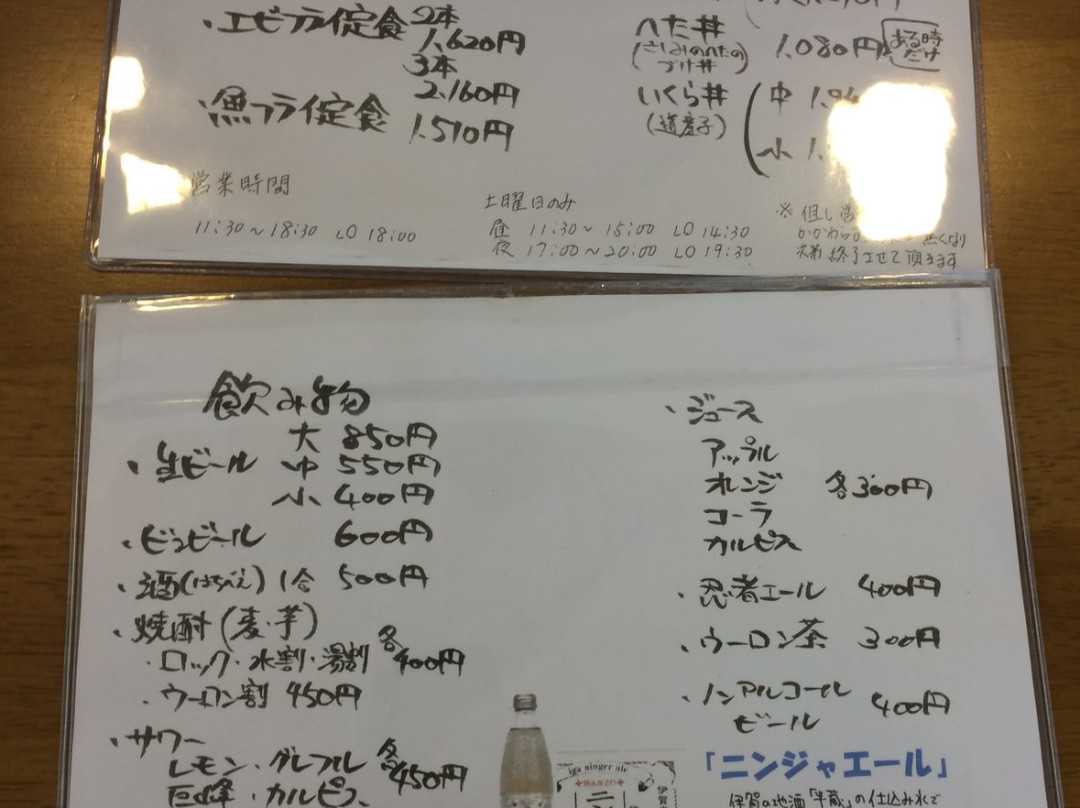 ・エビフライ定食 2本 1.620円
3本 2.160円
・魚フライ定食 1.510円
へた丼
(さしみのへたのづけ丼)
1.080円
ある時だけ
いくら丼
(道産子)
中
小
営業時間
11:30〜18:30 LO 18:00
土曜日のみ
昼 11:30〜15:00 LO 14:30
夜 17:00〜20:00 LO 19:30
※但し
無くなり
次第終了させて頂きます
飲み物
・生ビール 大 850円
中 550円
小 400円
・ビンビール 600円
・酒(はちべえ) 1合 500円
・焼酎(麦・芋)
・ロック・水割・湯割 各400円
・ウーロン割 450円
・サワー
レモン・グレフル 各450円
巨峰・カルピス
・ジュース
アップル
オレンジ 各300円
コーラ
カルピス
・忍者エール 400円
・ウーロン茶 300円
・ノンアルコール
ビール 400円
「ニンジャエール」
伊賀の地酒「半蔵」の仕込み水で
iga ninger ale